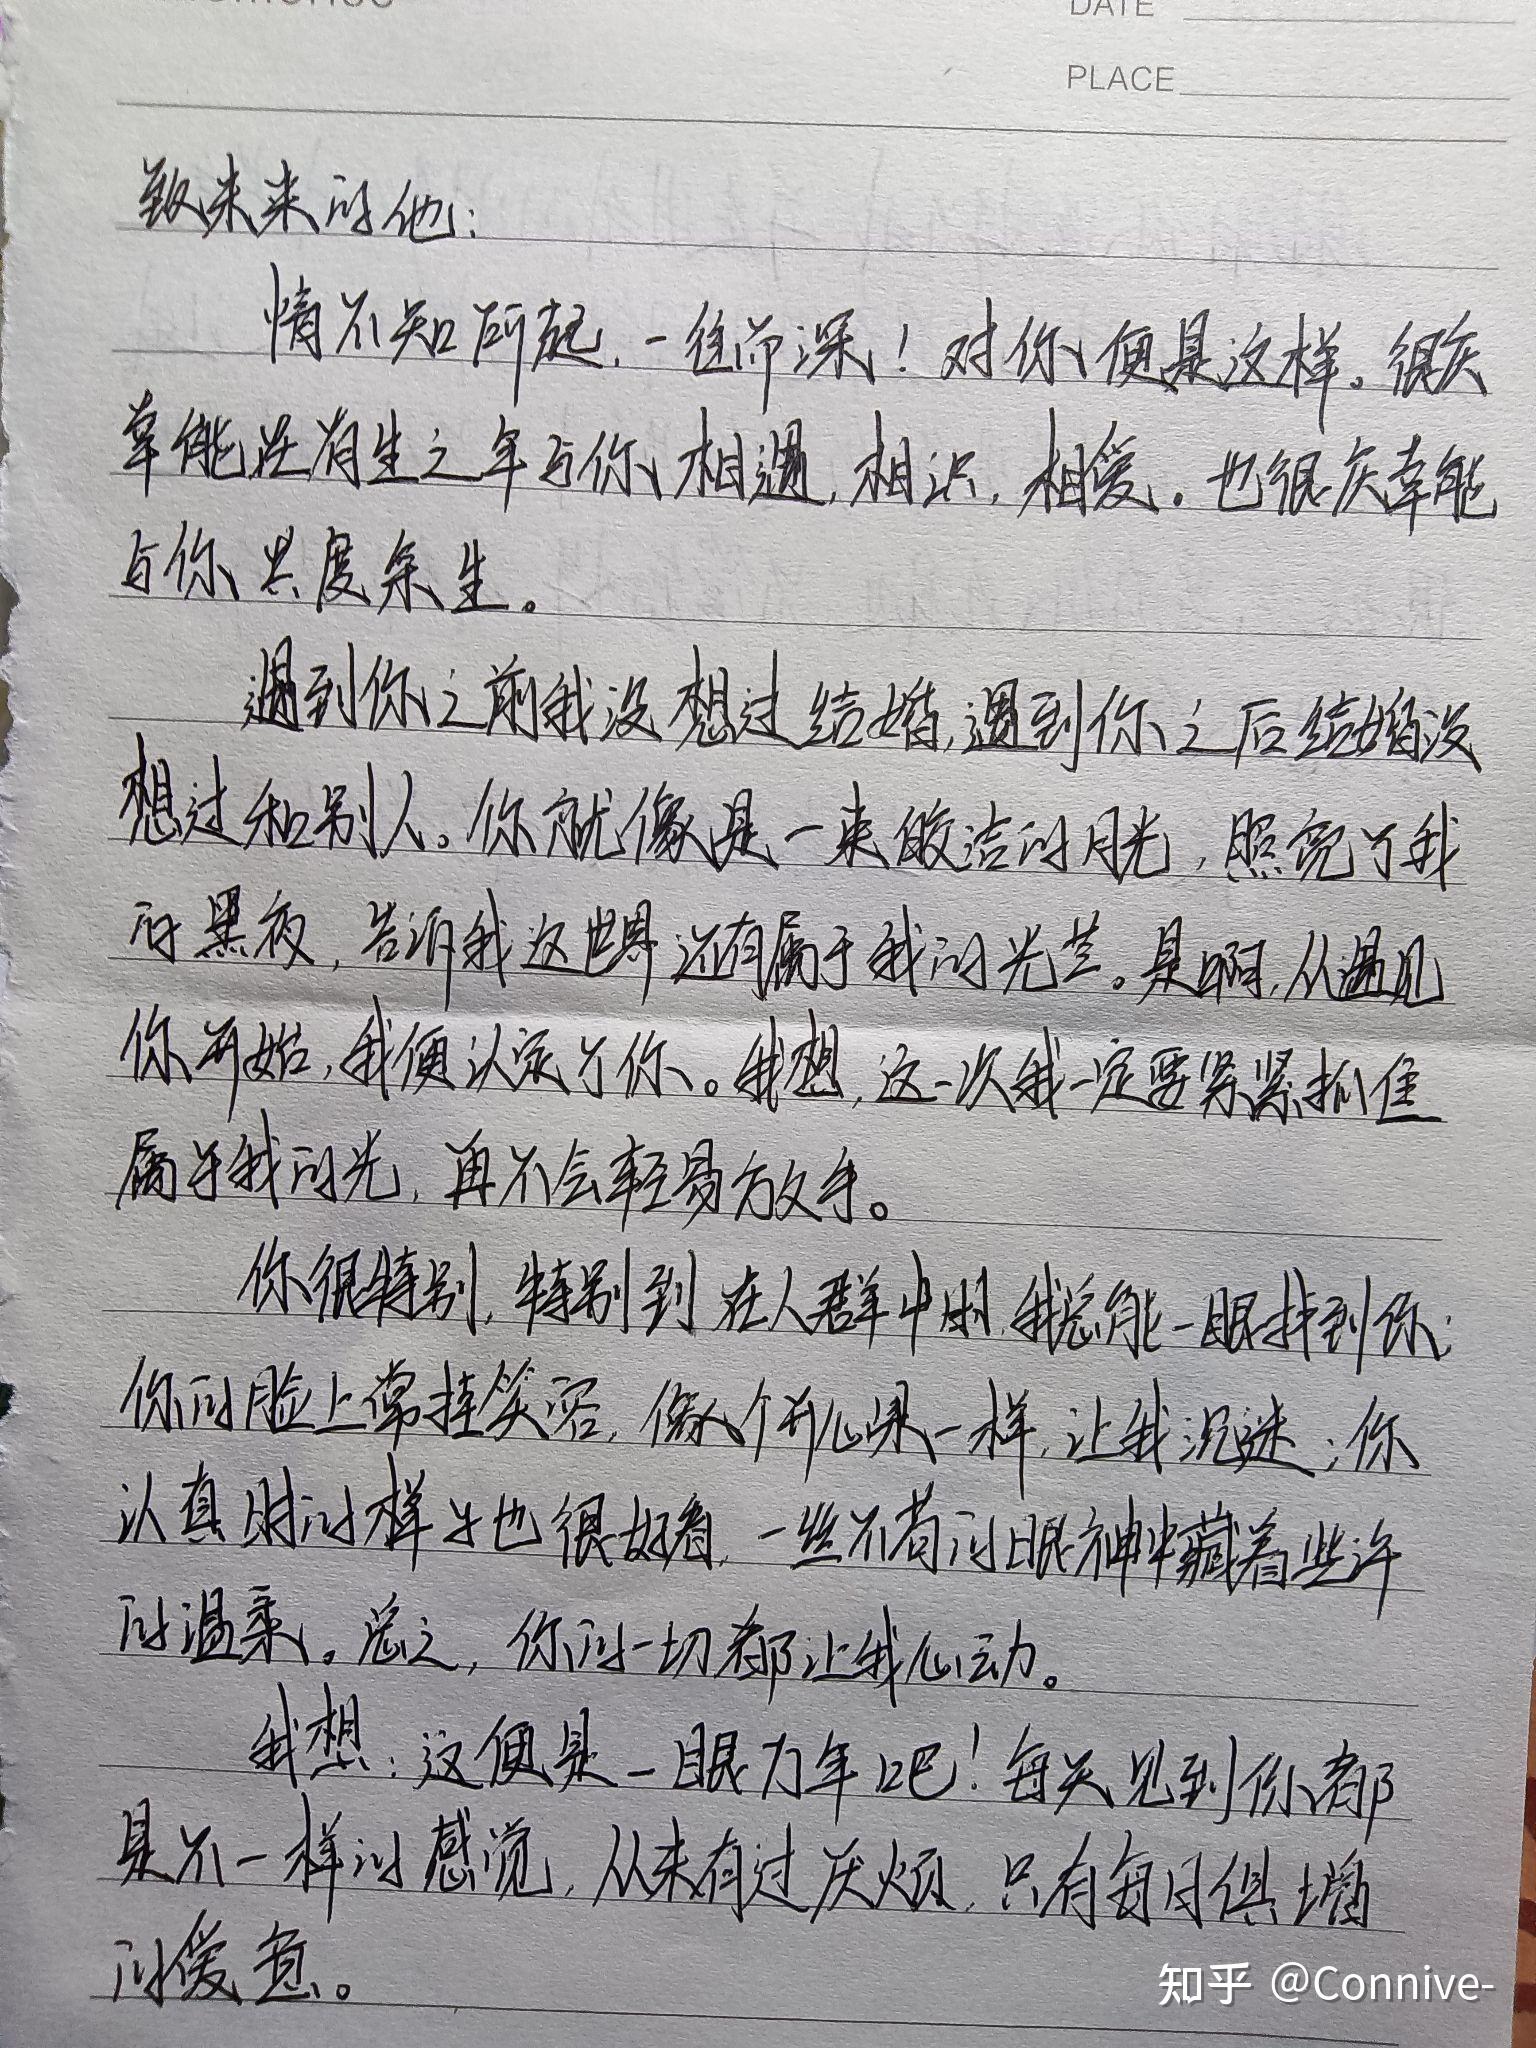 DATE
PLACE
致未来的他：
情不知所起，一往而深！对你便是这样。很庆
幸能在有生之年与你相遇，相识，相爱。也很庆幸能
与你共度余生。
遇到你之前我没想过结婚，遇到你之后结婚没
想过和别人。你就像是一束皎洁的月光，照亮了我
的黑夜，告诉我这世界还有属于我的光芒。是啊，从遇见
你开始，我便认定了你。我想，这一次我一定要紧紧抓住
属于我的光，再不会轻易放手。
你很特别，特别到在人群中时，我总能一眼找到你；
你的脸上常挂笑容，像个开心果一样，让我沉迷；你
认真时的样子也很好看，一丝不苟的眼神中藏着些许
的温柔。总之，你的一切都让我心动。
我想：这便是一眼万年吧！每天见到你都
是不一样的感觉，从未有过厌烦，只有每日俱增
的爱意。
知乎 @Connive-